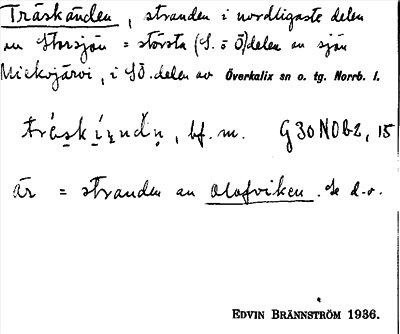 Träskänden, stranden i nordligaste delen
av Storsjön = största (S. o Ö) delen av sjön
Miekojärvi, i SÖ. delen av Överkalix sn o. tg. Norrb. l.
träskä́ndn, bf. m. G 30 NOb2, 15
är = stranden av Olofviken. Se d. o.
EDVIN BRÄNNSTRÖM 1936.